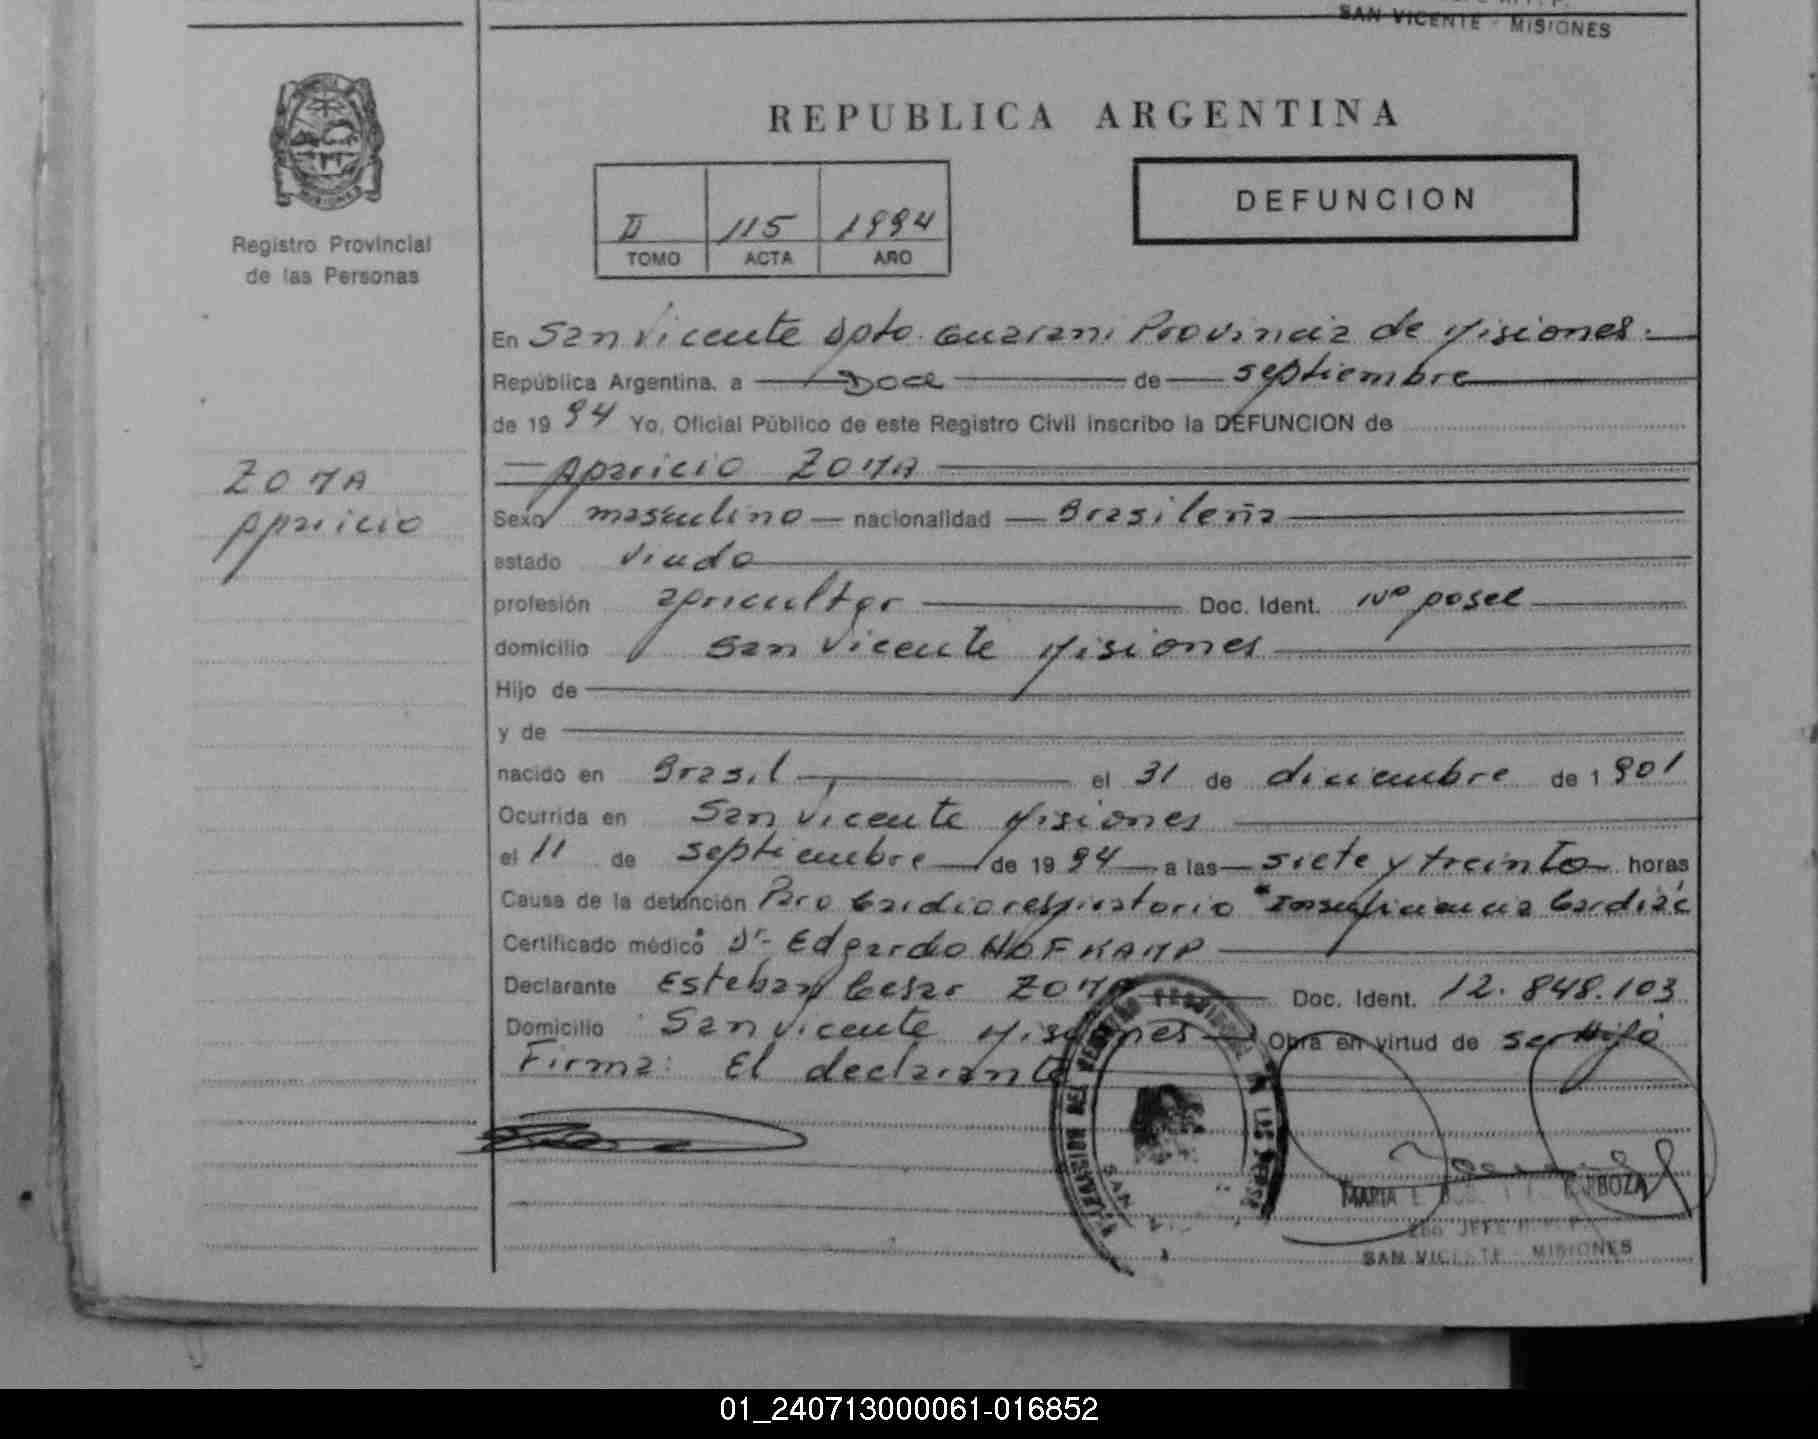 SAN VICENTE - MISIONES
REPUBLICA ARGENTINA
DEFUNCION
II 115 1994
TOMO ACTA AÑO
Registro Provincial
de las Personas
En San Vicente Dpto. Guarani Provincia de Misiones.
República Argentina, a Doce de septiembre
de 1994 Yo, Oficial Público de este Registro Civil inscribo la DEFUNCION de
Aparicio ZOMA
ZOMA
Aparicio
Sexo masculino nacionalidad Brasileña
estado Viudo
profesión agricultor Doc. Ident. Nº posee
domicilio San Vicente Misiones
Hijo de
y de
nacido en Brasil el 31 de diciembre de 1901
Ocurrida en San Vicente Misiones
el 11 de septiembre de 1994 a las siete y treinta horas
Causa de la defunción Paro Cardiorespiratorio Insuficiencia Cardiác
Certificado médico Dr- Edgardo HOFKAMP
Declarante Esteban Cesar ZOMA Doc. Ident. 12.848.103
Domicilio San Vicente Misiones Obra en virtud de ser Hijo
Firma: El declarante
MARIA
JEFE
SAN VICENTE - MISIONES
01_240713000061-016852